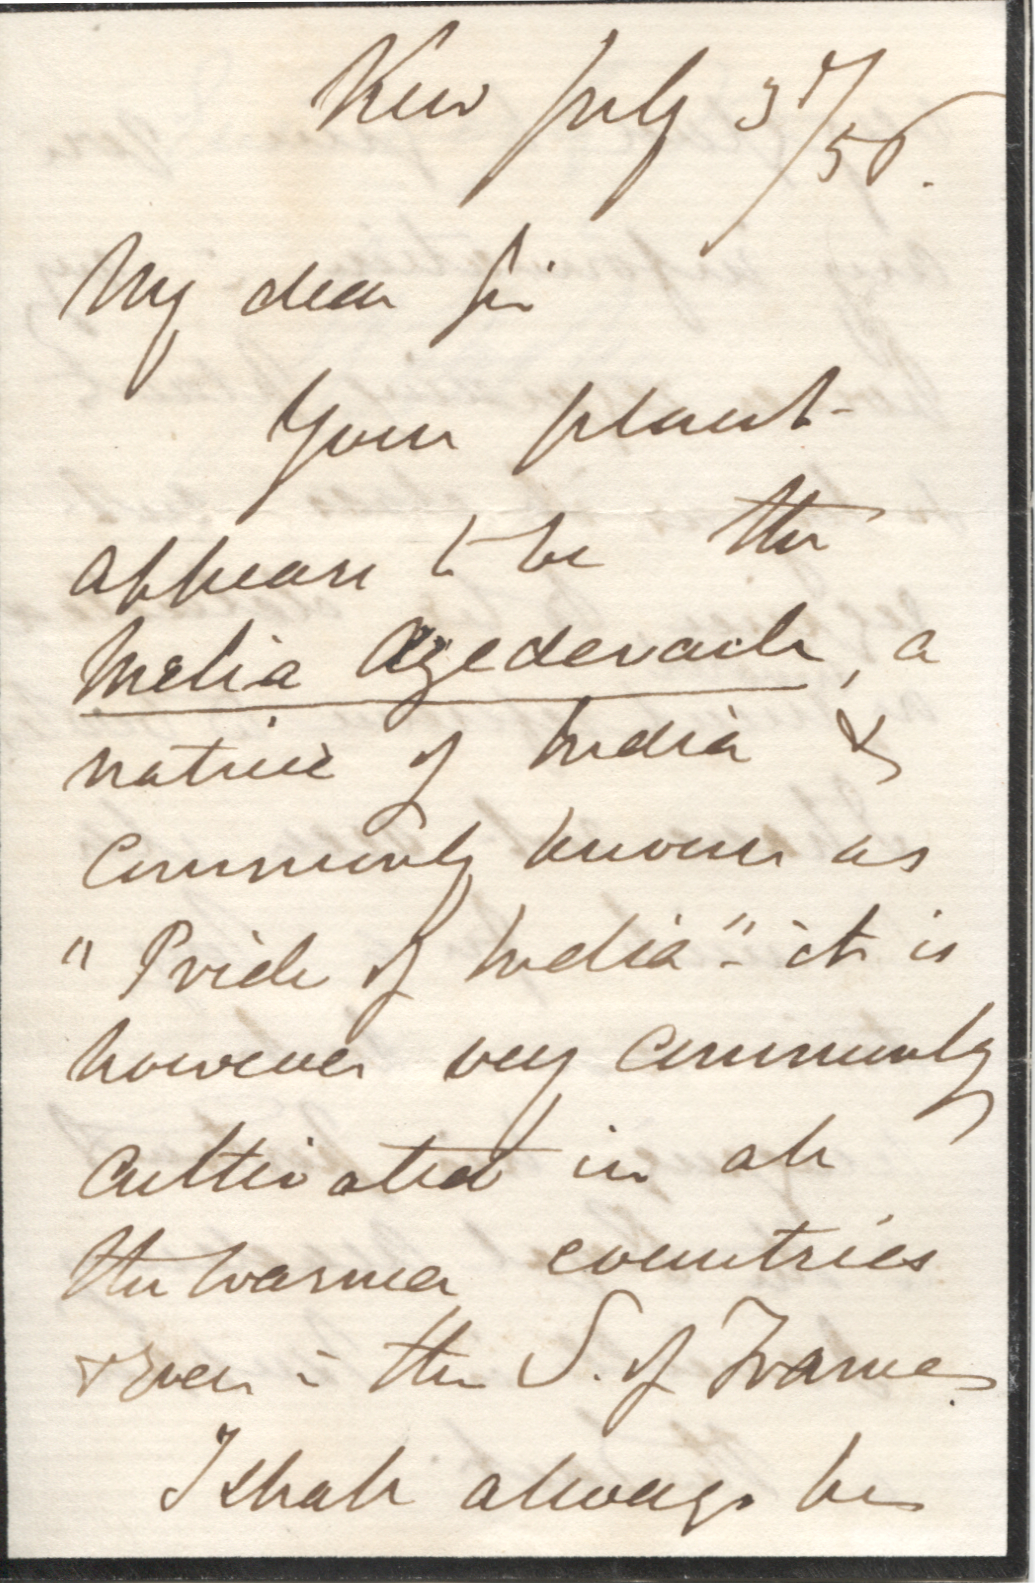 Kew July 31/56.
My dear Sir
Your plant
appears to be the
Melia Azederach, a
native of India &
commonly known as
"Pride of India" - it is
however very commonly
cultivated in all
the warmer countries
& even in the S. of France.
I shall always be